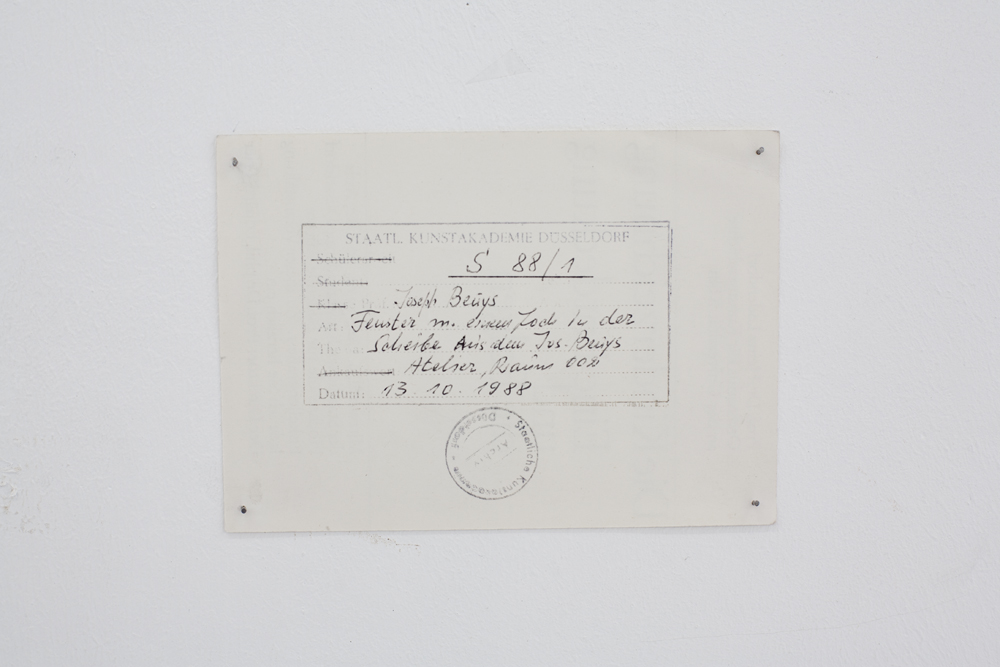 STAATL. KUNSTAKADEMIE DÜSSELDORF
Schülerarbeit S 88/1
Student:
Klasse Prof. Joseph Beuys
Art: Fenster m. einem Loch in der
Scheibe Aus dem Jos. Beuys
Atelier, Raum 002
Datum: 13. 10. 1988
Staatliche Kunstakademie • Düsseldorf •
Archiv